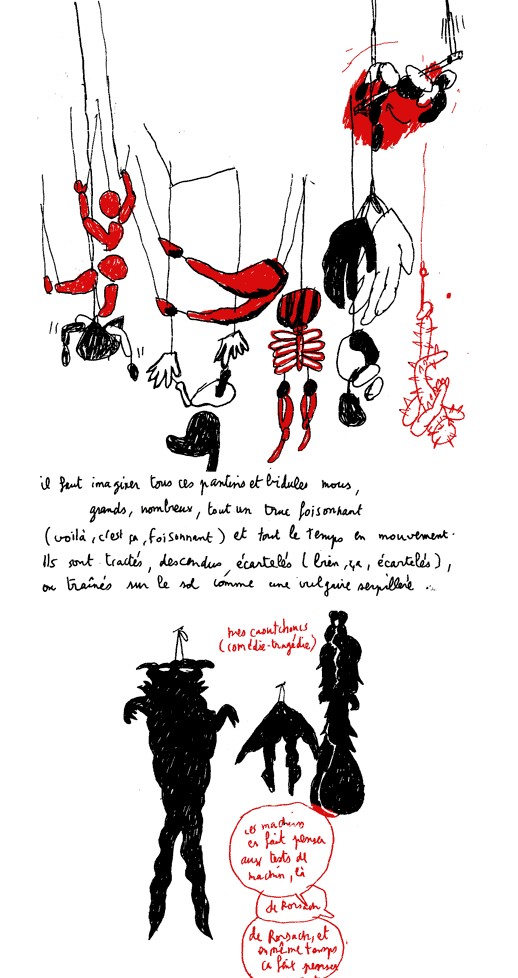 il faut imaginer tous ces pantins et bidules mous,
grands, nombreux, tout un truc foisonnant
(voilà, c'est ça, foisonnant) et tout le temps en mouvement.
Ils sont tractés, descendus, écartelés (bien, ça, écartelés),
ou traînés sur le sol comme une vulgaire serpillère...
mes caoutchoucs
(comédie-tragédie)
ces machins
ça fait penser
aux tests de
machin, là
de Rorsach
de Rorsach, et
en même temps
ça fait penser